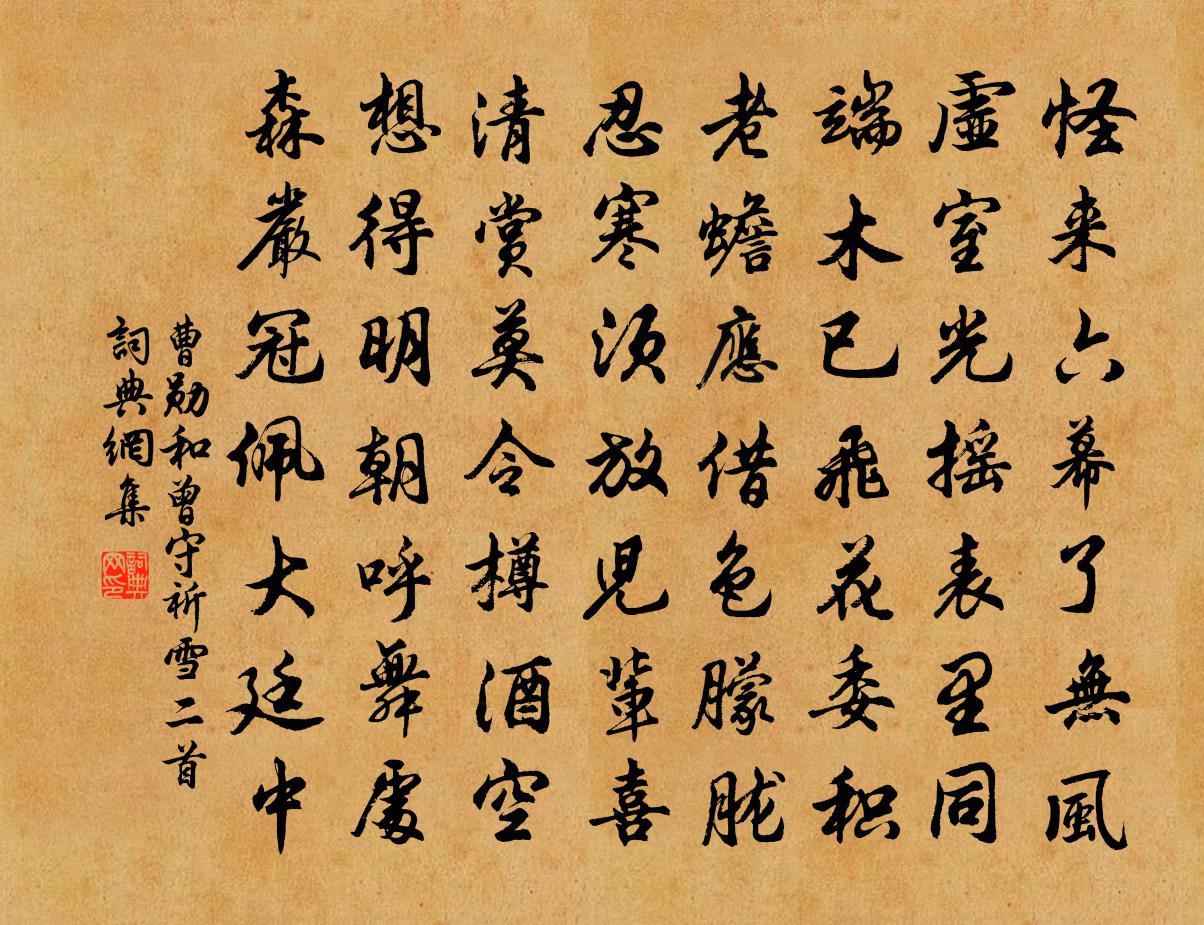 怪来六幕了無風
虛室光摇表里同
端木已飛花委积
老蟾應借色朦胧
忍寒须放兒輩喜
清赏莫令樽酒空
想得明朝呼舞處
森嚴冠佩大廷中
曹勋和曾守祈雪二首
詞典網集
詞典
网印